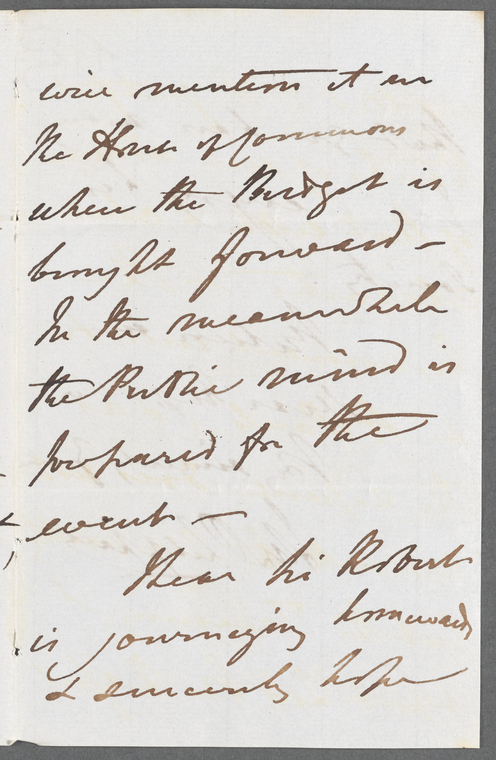 will mention it in
the House of Commons
when the Budget is
brought forward –
In the meanwhile
the Public mind is
prepared for the
event –
I hear Sir Robert
is journeying homewards
& sincerely hope